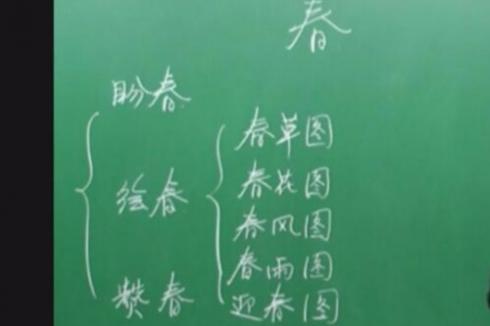 春
盼春
绘春
赞春
春草图
春花图
春风图
春雨图
迎春图